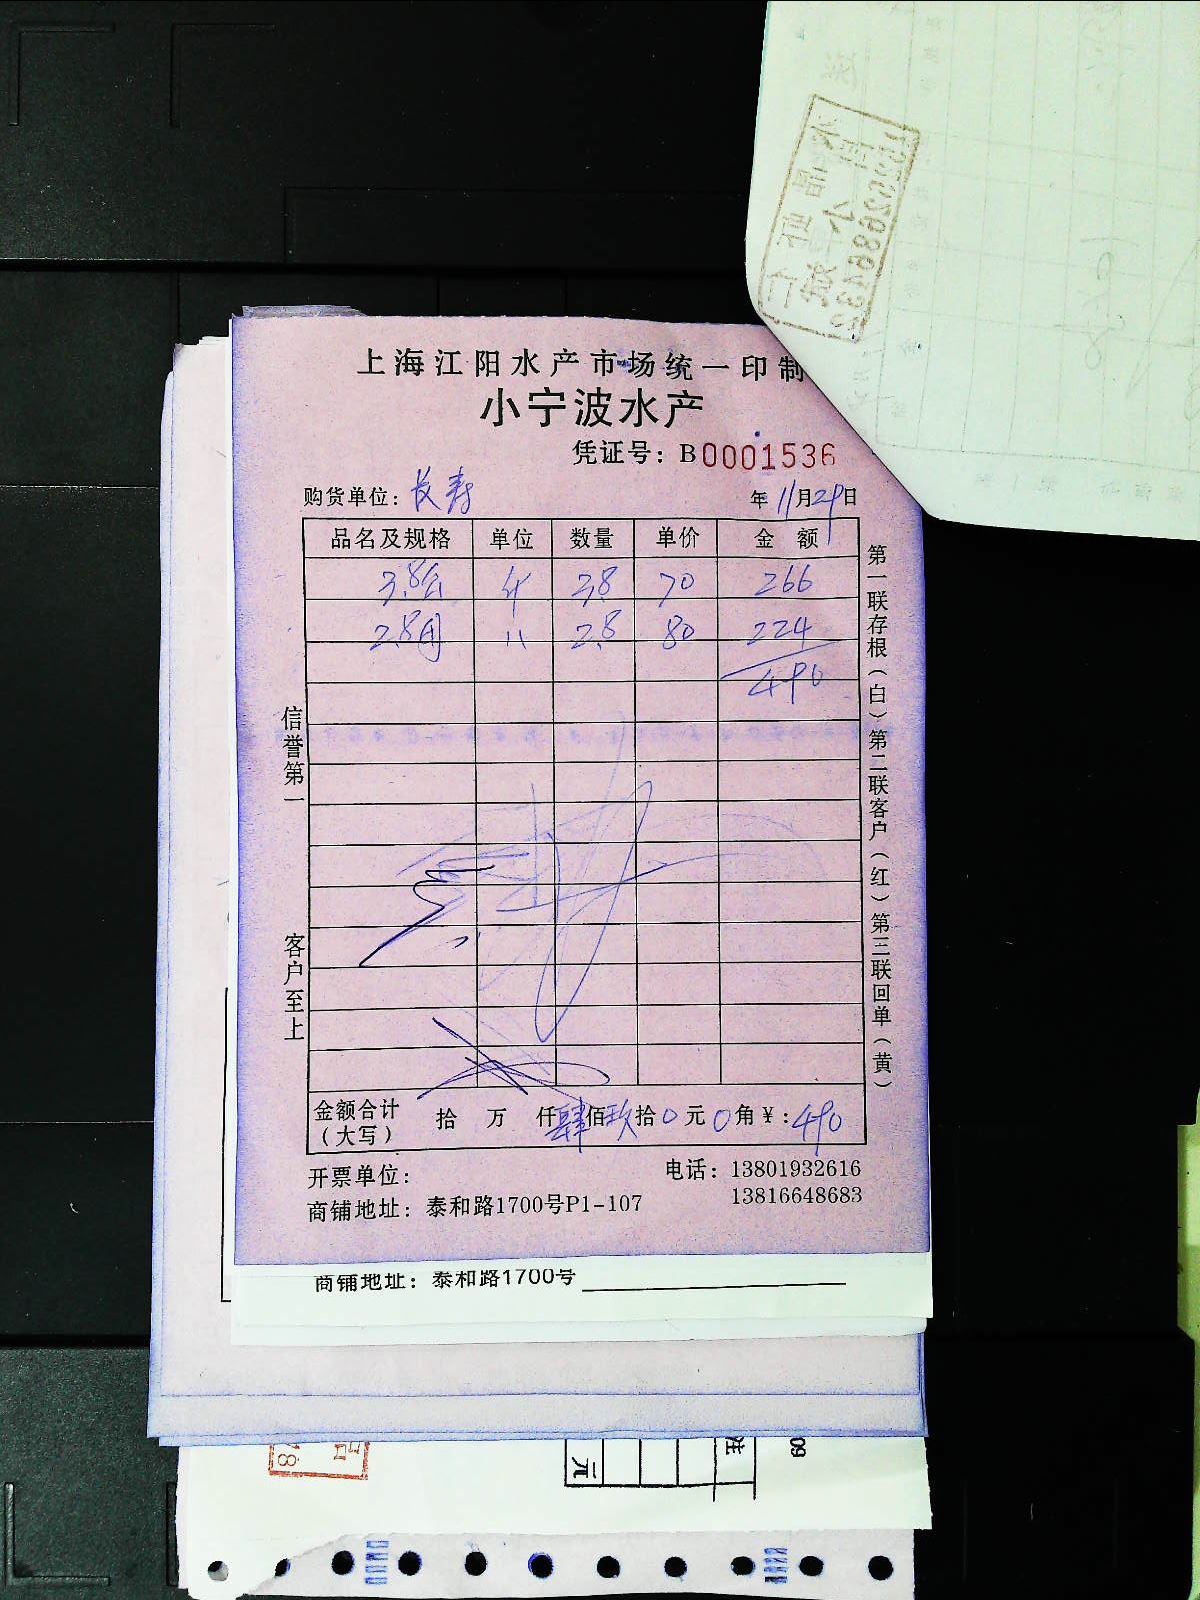 上海江阳水产市场统一印制
小宁波水产
凭证号：B0001536
购货单位：长寿 年11月29日
品名及规格 单位 数量 单价 金额
3.8公 斤 3.8 70 266
2.8母 〃 2.8 80 224
490
信誉第一 客户至上
第一联存根（白）第二联客户（红）第三联回单（黄）
金额合计（大写） 拾 万 仟肆佰玖拾0元0角￥:490
开票单位： 电话：13801932616
13816648683
商铺地址：泰和路1700号P1-107
商铺地址：泰和路1700号
元
注
09